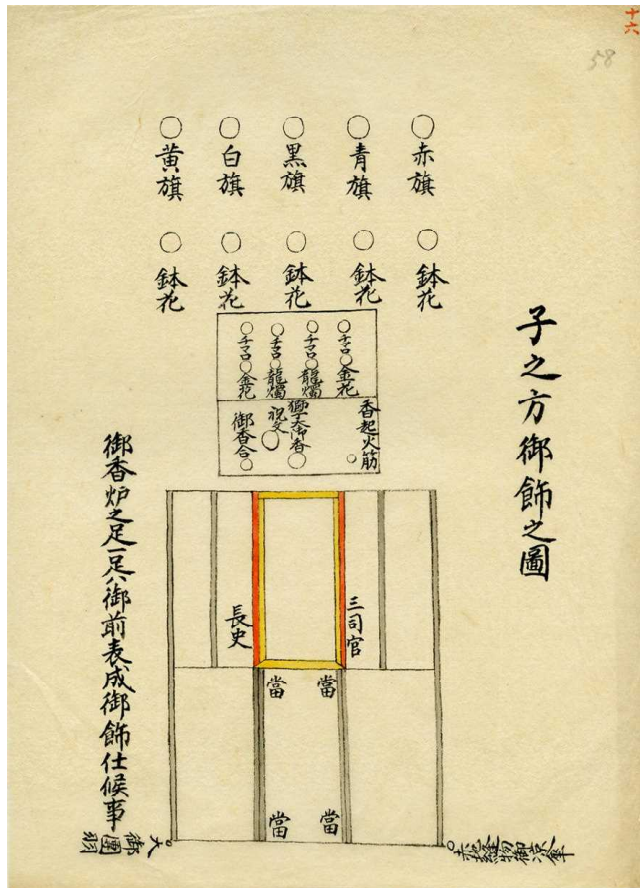 十六
58
子之方御飾之圖
赤旗
青旗
黒旗
白旗
黄旗
鉢花
鉢花
鉢花
鉢花
鉢花
チマロ 金花
チマロ 龍燭
チマロ 龍燭
チマロ 金花
香起火筋
祝文
御香合
三司官
長史
當
當
當
當
御香炉之足一足ハ御前表成御飾仕候事
大御團羽